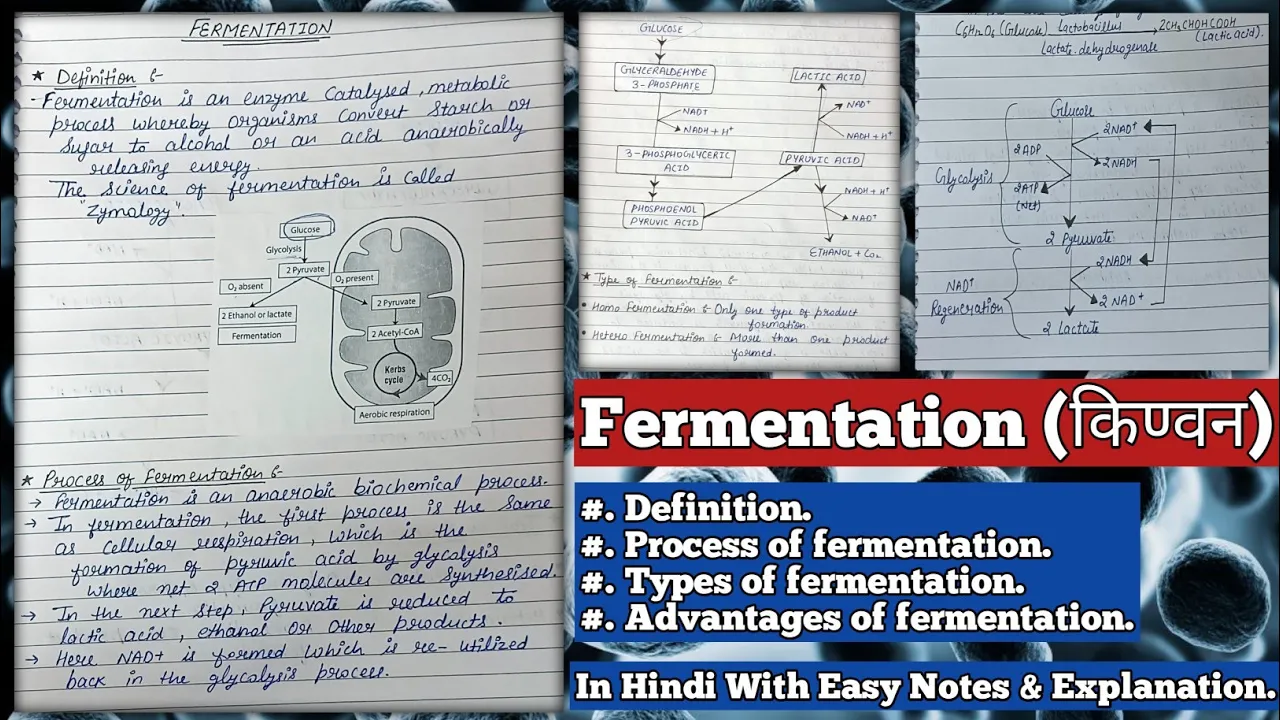 FERMENTATION
★ Definition :-
- Fermentation is an enzyme Catalysed, metabolic
process whereby organisms Convert Starch or
Sugar to alcohol or an acid anaerobically
releasing energy.
The Science of fermentation is Called
"Zymology".
Glucose
Glycolysis
2 Pyruvate
O₂ absent
O₂ present
2 Ethanol or lactate
Fermentation
2 Pyruvate
2 Acetyl-CoA
Kerbs
cycle
4CO₂
Aerobic respiration
★ Process of Fermentation :-
→ Fermentation is an anaerobic biochemical process.
→ In fermentation, the first process is the Same
as Cellular respiration, which is the
formation of pyruvic acid by glycolysis
where net 2 ATP molecules are Synthesised.
→ In the next Step, Pyruvate is reduced to
lactic acid, ethanol Or Other products.
→ Here NAD+ is formed which is re-utilized
back in the glycolysis process.
GLUCOSE
GLYCERALDEHYDE
3-PHOSPHATE
NAD⁺
NADH + H⁺
3-PHOSPHOGLYCERIC
ACID
PHOSPHOENOL
PYRUVIC ACID
LACTIC ACID
NAD⁺
NADH + H⁺
PYRUVIC ACID
NADH + H⁺
NAD⁺
ETHANOL + CO₂
★ Type of Fermentation :-
• Homo Fermentation :- Only one type of product
formation.
• Hetero Fermentation :- More than one product
formed.
C₆H₁₂O₆ (Glucose) Lactobacillus → 2CH₃CHOHCOOH
Lactate dehydrogenase (Lactic acid).
Glucose
2NAD⁺
2ADP
2NADH
Glycolysis
2ATP
(Net)
2 Pyruvate
2NADH
NAD⁺
Regeneration
2 NAD⁺
2 Lactate
Fermentation (किण्वन)
#. Definition.
#. Process of fermentation.
#. Types of fermentation.
#. Advantages of fermentation.
In Hindi With Easy Notes & Explanation.